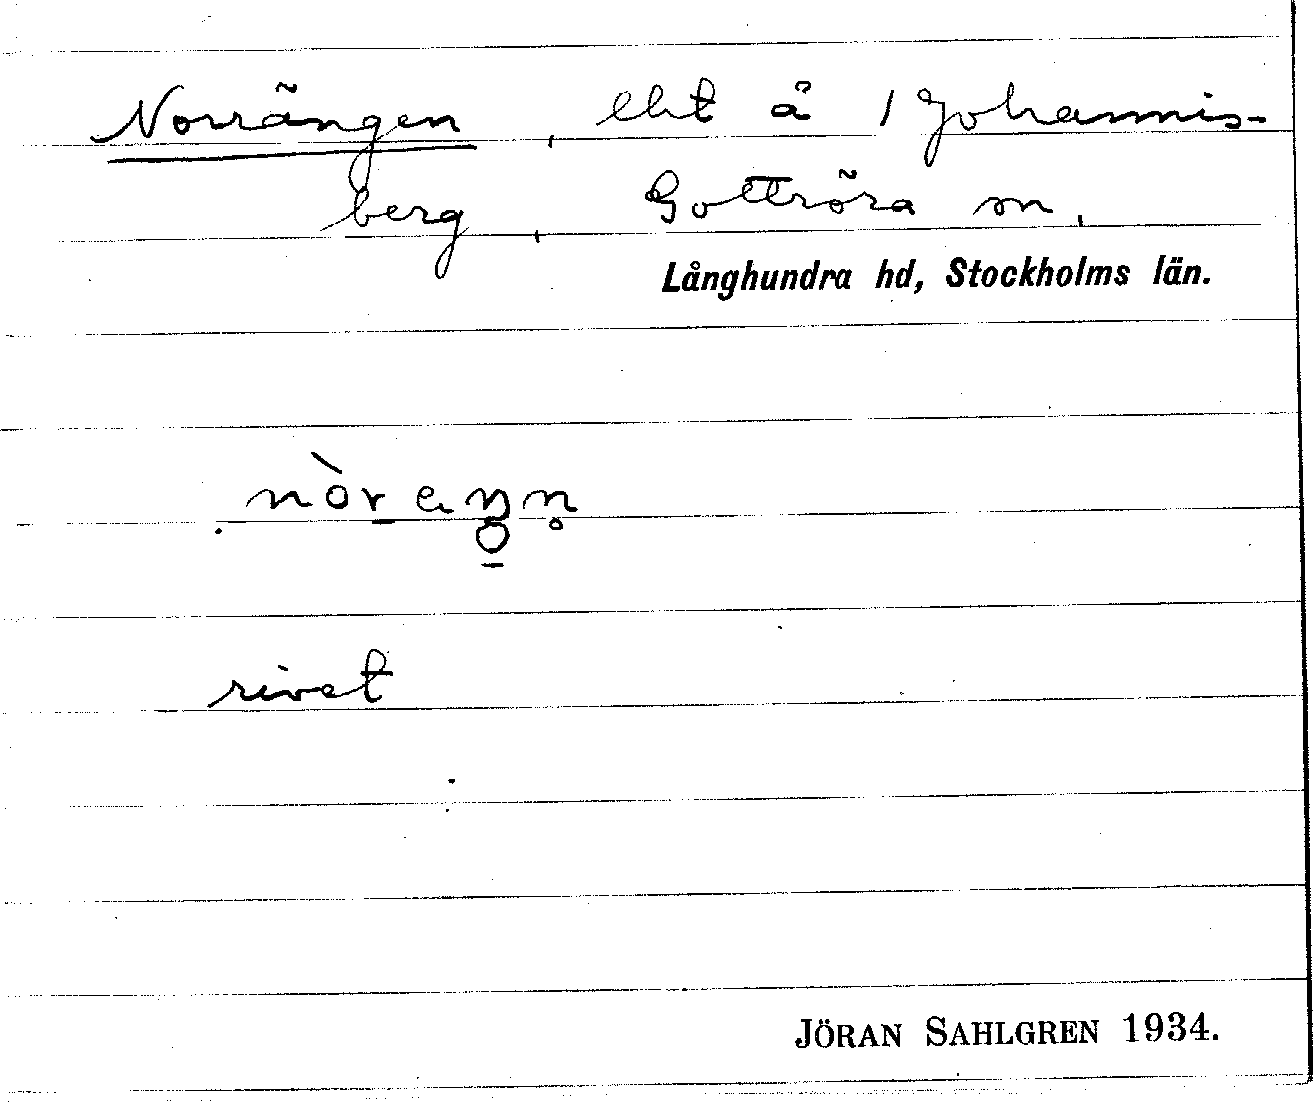 Norrängen, lht å 1 Johannis-
berg, Gottröra sn,
Långhundra hd, Stockholms län.
nòraŋn̥
rivet
JÖRAN SAHLGREN 1934.